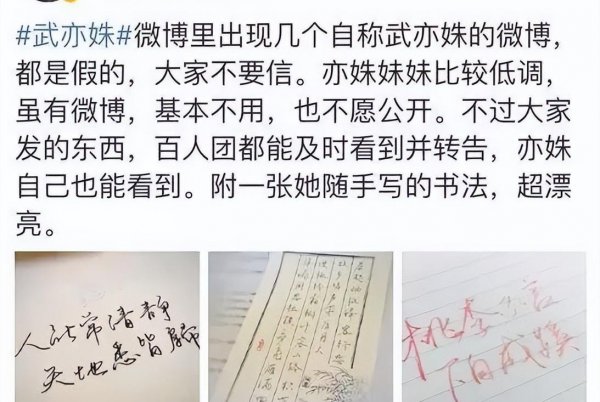 #武亦姝#微博里出现几个自称武亦姝的微博，
都是假的，大家不要信。亦姝妹妹比较低调，
虽有微博，基本不用，也不愿公开。不过大家
发的东西，百人团都能及时看到并转告，亦姝
自己也能看到。附一张她随手写的书法，超漂
亮。
人能常清静
天地悉皆歸
桃李不言
下自成蹊